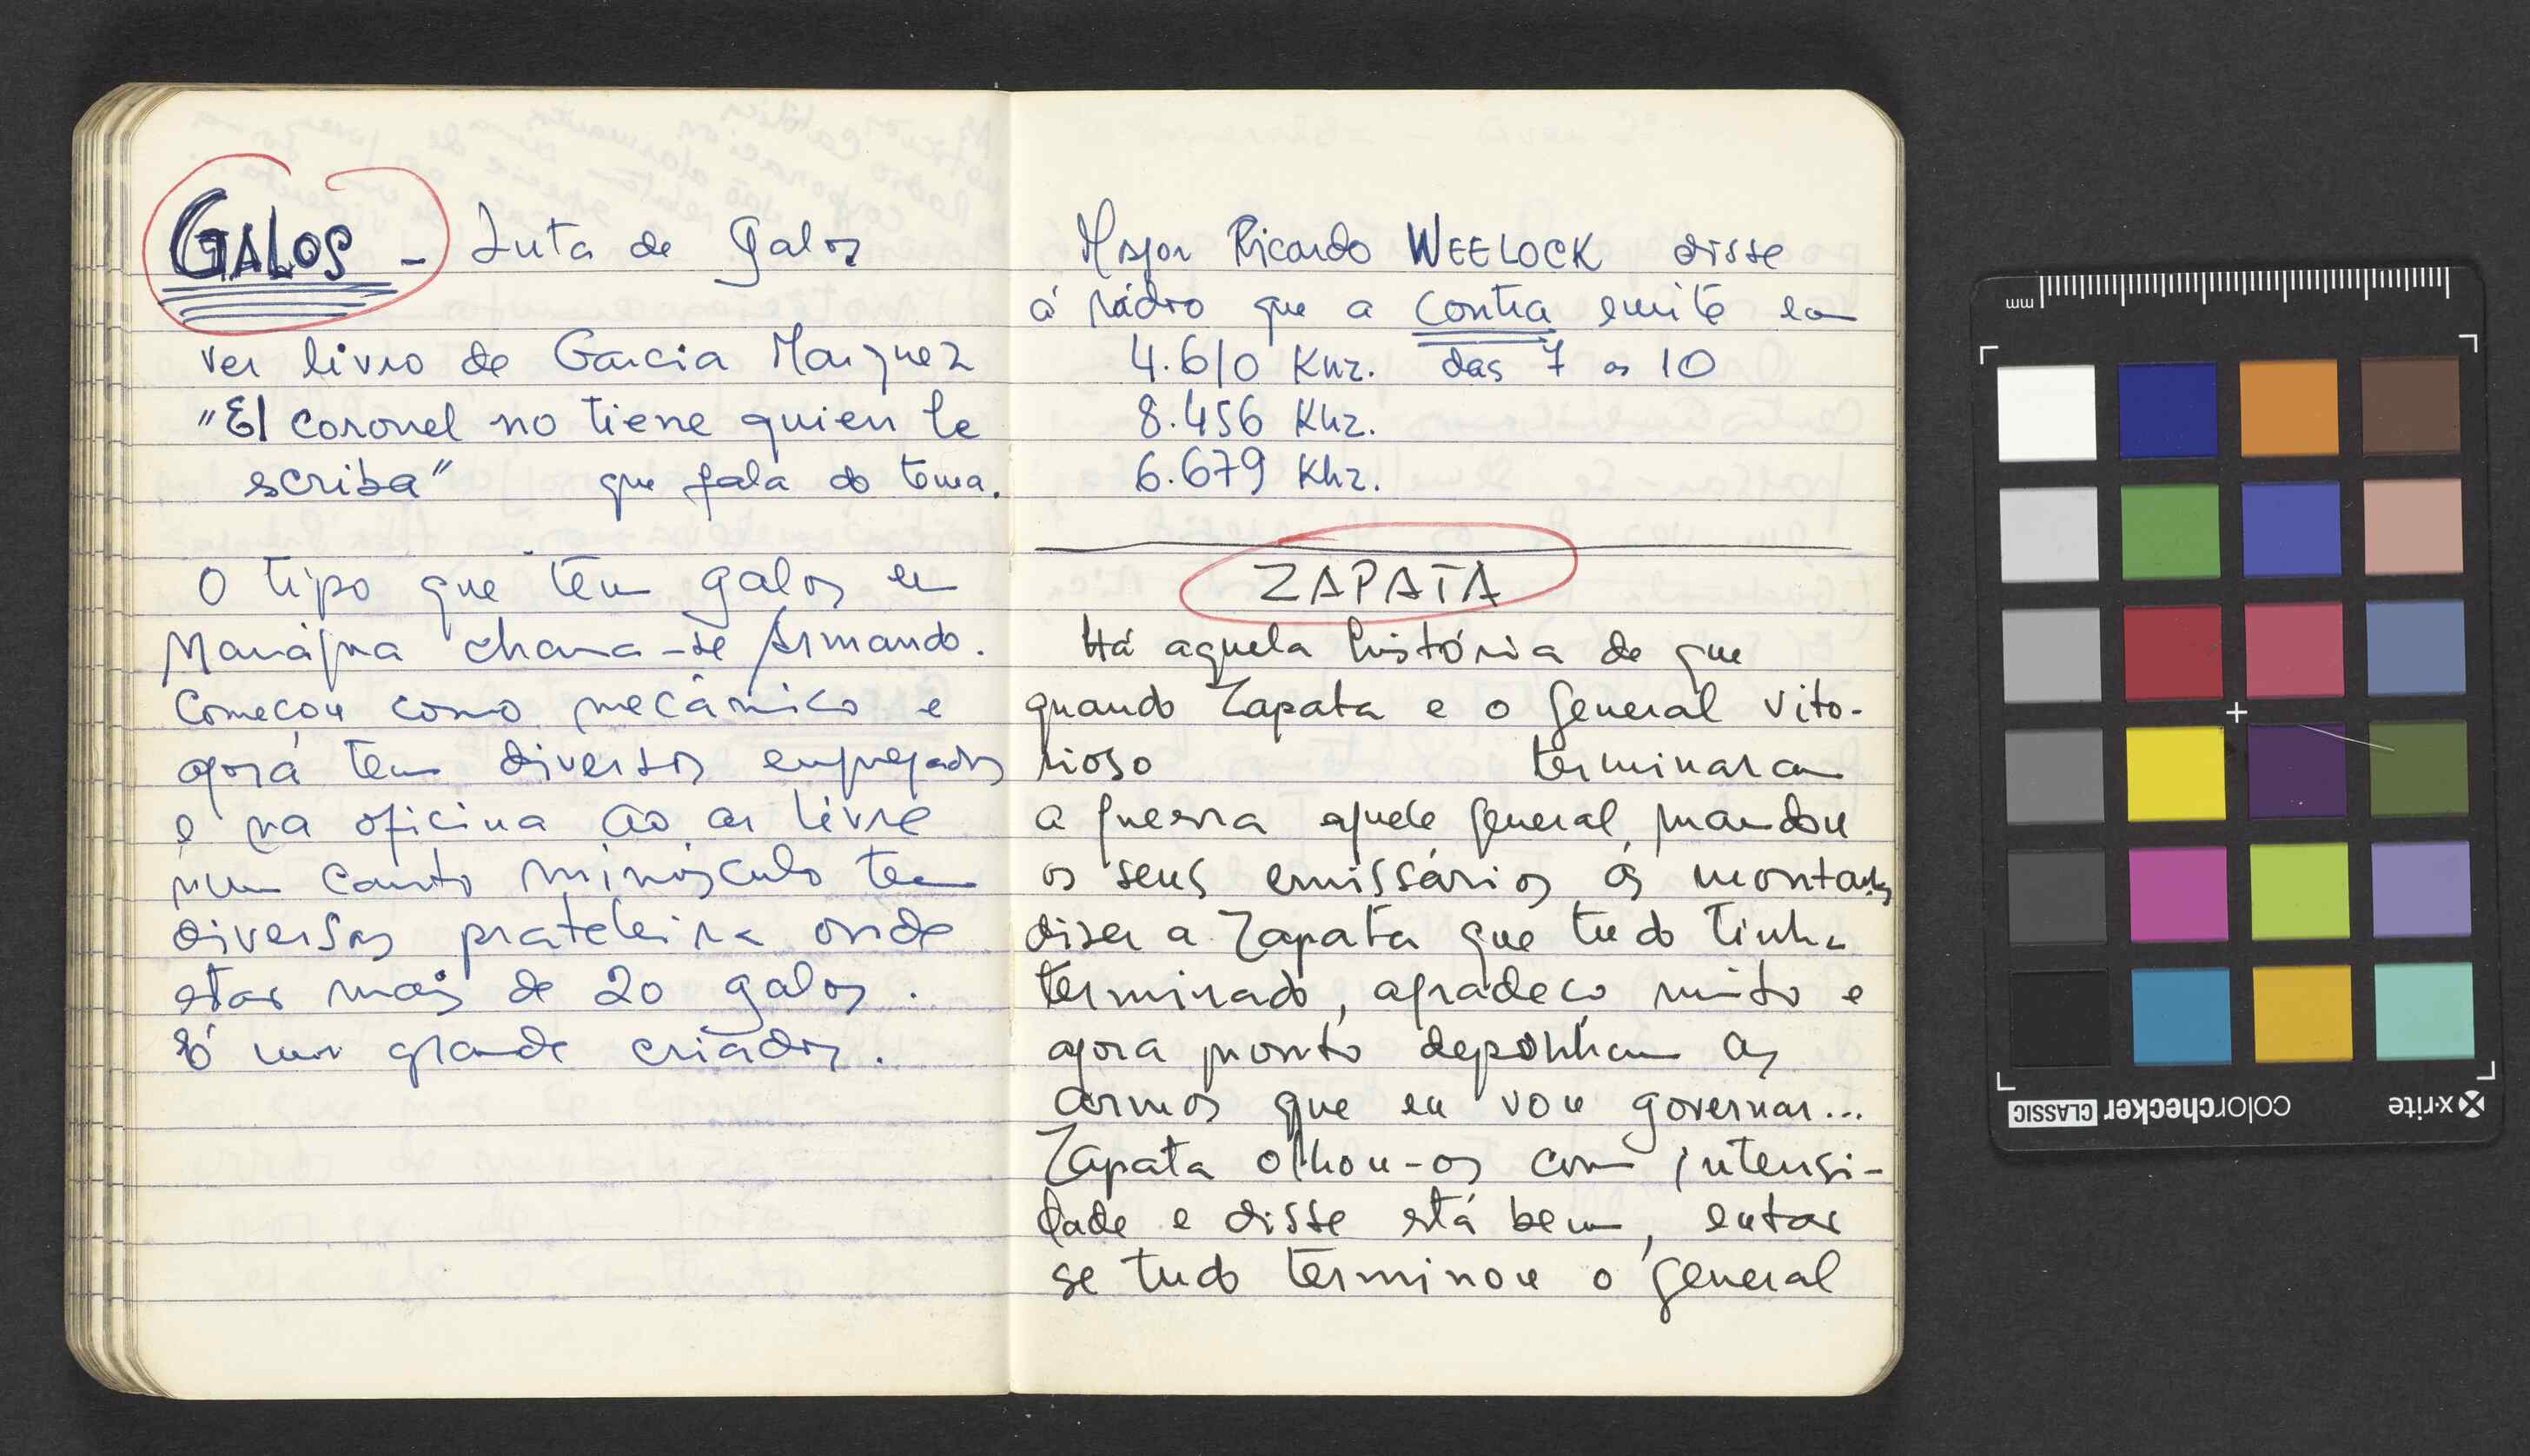 GALOS - Luta de galos
ver livro de Garcia Marquez
"El coronel no tiene quien le
escriba" que fala do tema.
O tipo que têm galos em
Manágua chama-se Armando.
Começou como mecânico e
agora tem diversos empregados
e na oficina ao ar livre
num canto minúsculo tem
diversas prateleiras onde
estão mais de 20 galos.
É um grande criador.
Major Ricardo WEELOCK disse
à rádio que a Contra emite em
4.610 Khz. das 7 às 10
8.456 Khz.
6.679 Khz.
ZAPATA
Há aquela história de que
quando Zapata e o general vito-
rioso terminaram
a guerra aquele general mandou
os seus emissários às montanhas
dizer a Zapata que tudo tinha
terminado, agradeço muito e
agora pronto deponham as
armas que eu vou governar...
Zapata olhou-os com intensi-
dade e disse está bem, então
se tudo terminou o general
mm
colorchecker CLASSIC
x-rite